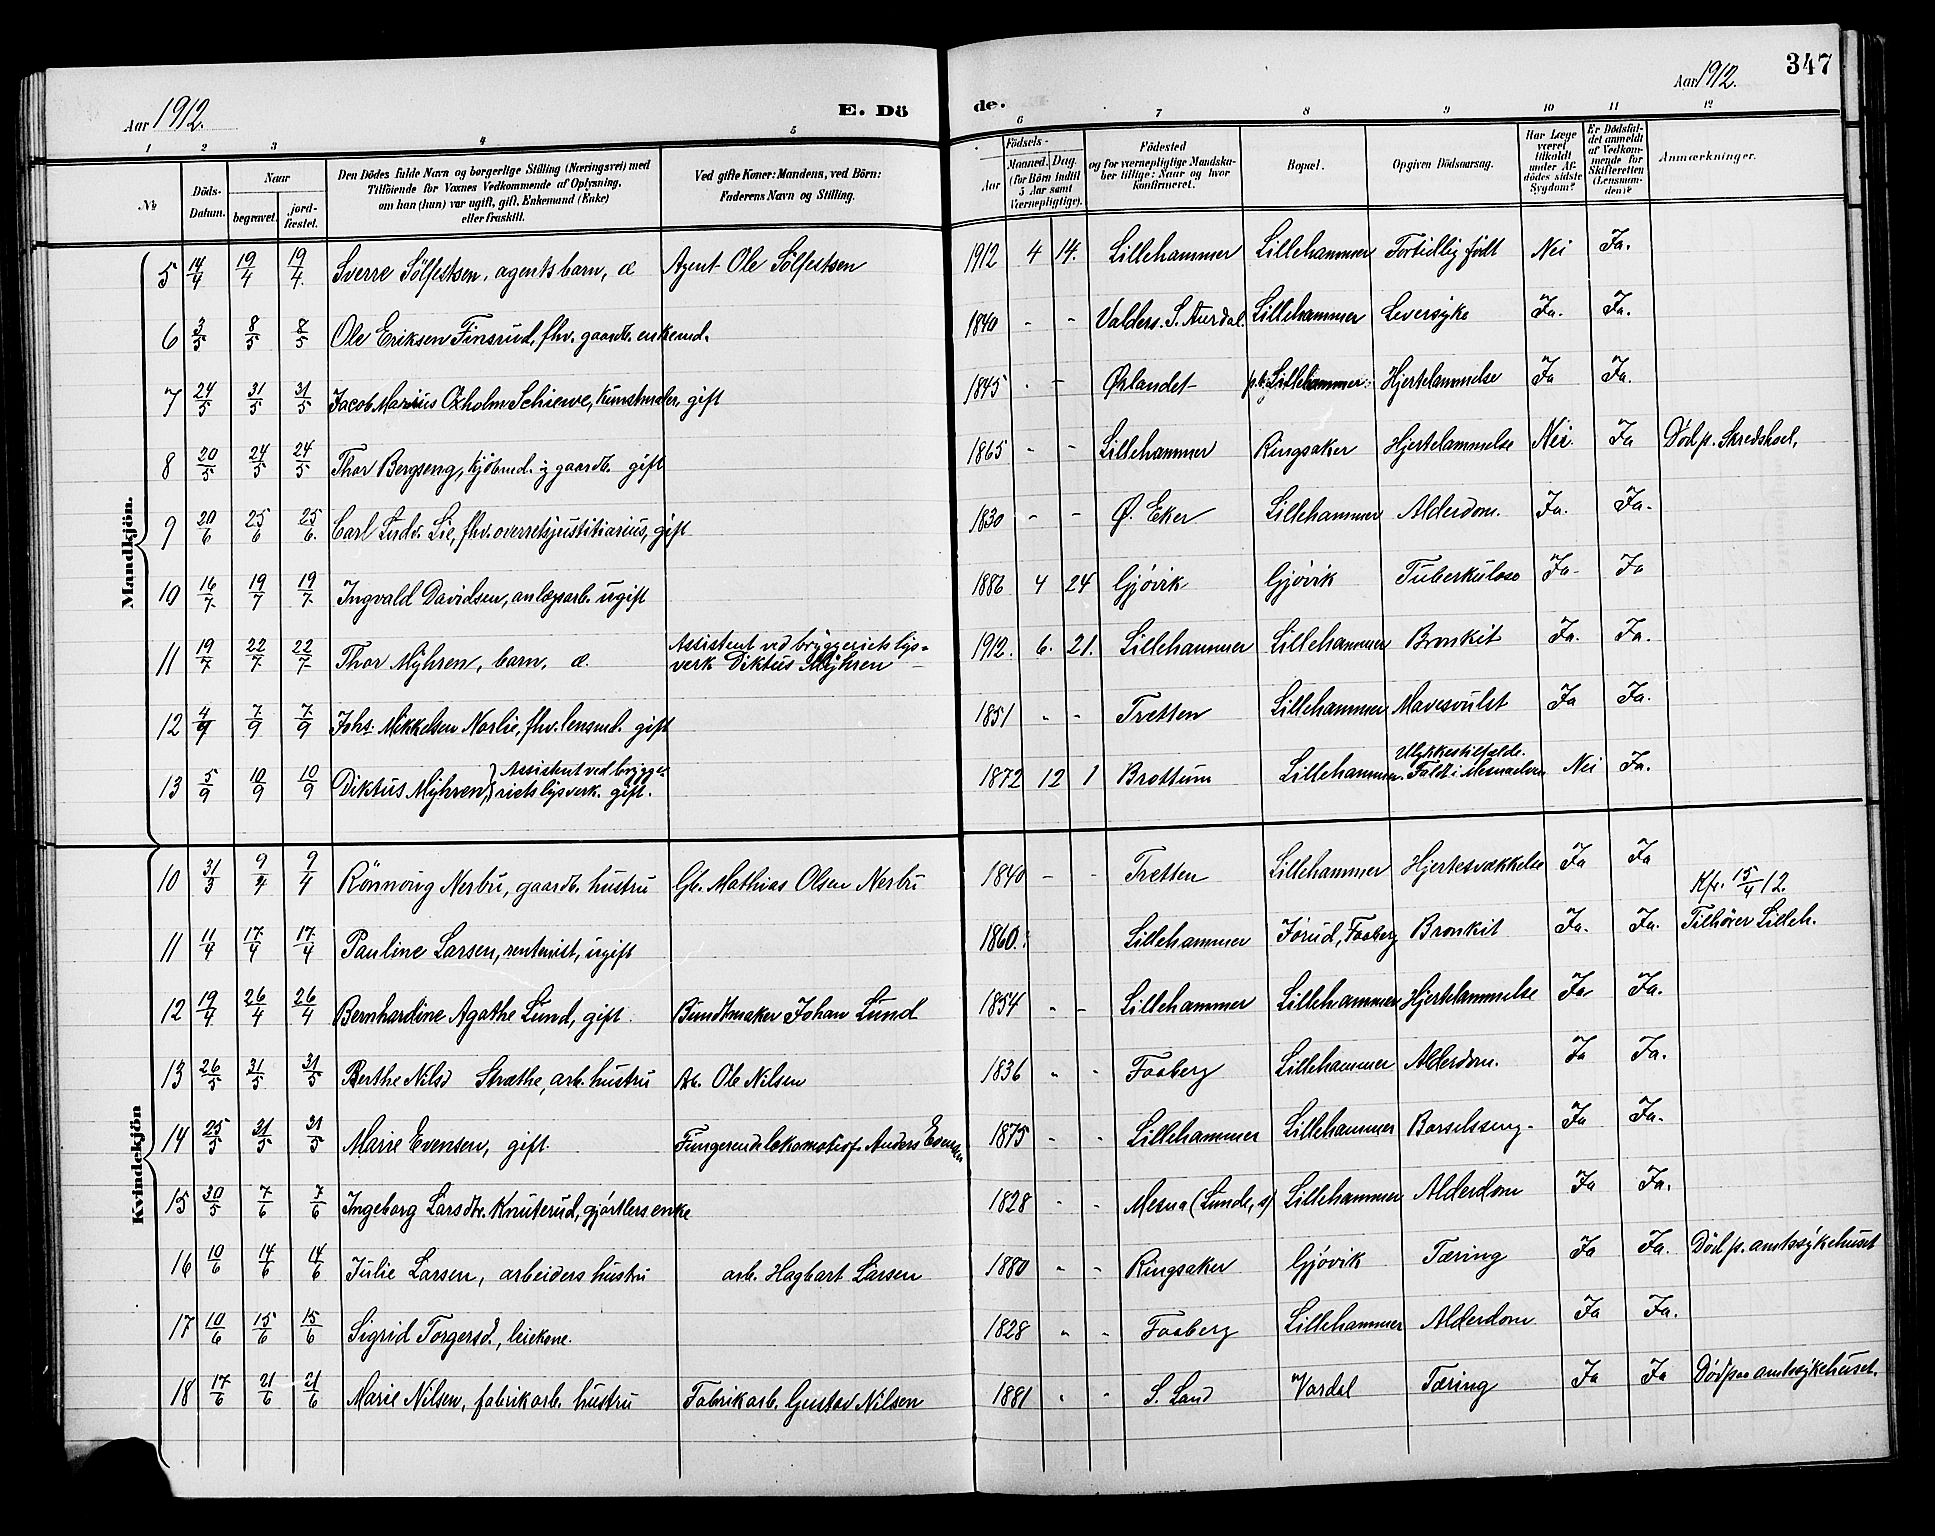 Aar 1912. E. Dö
de. Aar 1912. 347
1 2 3 4 5 6 7 8 9 10 11 12
No
Döds-Datum.
Naar
begravet.
jord-fæstet.
Den Dödes fulde Navn og borgerlige Stilling (Næringsvei) med
Tilföiende for Voxnes Vedkommende af Oplysning,
om han (hun) var ugift, gift, Enkemand (Enke)
eller fraskilt.
Ved gifte Koner: Mandens, ved Börn:
Faderens Navn og Stilling.
Födsels-
Aar
Maaned. Dag.
(for Börn indtil
5 Aar samt
Værnepligtige).
Födested
og for værnepligtige Mandska-
ber tillige: Naar og hvor
konfirmeret.
Bopæl.
Opgiven Dödsaarsag.
Har Læge
været
tilkaldt
under Af-
dödes sidste
Sygdom?
Er Dödsfal-
det anmeldt
af Vedkom-
mende for
Skifteretten
(Lensman-
den)?
Anmærkninger.
Mandkjön.
5 14/4 19/4 19/4. Sverre Sölfestsen, agents barn, æ Agent Ole Sölfestsen 1912 4 14. Lillehammer Lillehammer Fortidlig født Nei Ja.
6 3/5 8/5 8/5 Ole Eriksen Finsrud, fhv. gaardb. enkemd. 1840 - - Valders. S. Aurdal. Lillehammer Leversyke Ja. Ja.
7 24/5 31/5 31/5 Jacob Marius Oxholm Schiewe, Kunstmaler, gift 1845 - - Ørlandet p.t. Lillehammer. Hjertelammelse Ja Ja.
8 20/5 24/5 24/5 Thor Bergseng, kjöbmd. og gaardb. gift 1865 - - Lillehammer Ringsaker Hjertelammelse Nei. Ja Död p. Skredshol,
9 20/6 25/6 25/6. Carl Ludv. Lie, fhv. overretsjustitiarius, gift 1830 - - Ø. Eker Lillehammer Alderdom. Ja. Ja.
10 16/7 19/7 19/7 Ingvald Davidsen, anlægsarb. ugift 1886 4 24 Gjövik Gjövik Tuberkulose Ja. Ja
11 19/7 22/7 22/7 Thor Myhren, barn, æ. Assistent ved bryggeriets lys-
verk Diktus Myhren 1912. 6. 21. Lillehammer Lillehammer Bronkit Ja. Ja.
12 4/9 7/9 7/9 Johs. Mikkelsen Norlie, fhv. lensmd. gift 1851 - - Tretten Lillehammer Mavesvulst Ja Ja.
13 5/9 10/9 10/9 Diktus Myhren, Assistent ved brygge-
riets lysverk. gift. 1872 12 1 Brøttum Lillehammer. Ulykkestilfælde.
Faldt i Mesnaelven Nei Ja.
Kvindekjön
10 31/3 9/4 9/4 Rönnoug Nerbu, gaardb. hustru Gb. Mathias Olsen Nerbu 1840 - - Tretten Lillehammer Hjertesvækkelse Ja Ja
11 11/4 17/4 17/4 Pauline Larsen, rentenist, ugift 1860. Lillehammer Jörud, Faaberg Bronkit Ja. Ja. Kfr. 15/4 12.
Tilhörer Lilleh.
12 19/4 26/4 26/4 Bernhardine Agathe Lund, gift. Bundtmaker Johan Lund 1854 - - Lillehammer Lillehammer Hjertelammelse Ja. Ja.
13 26/5 31/5 31/5 Berthe Nilsd Stræthe, arb. hustru Arb. Ole Nilsen 1836 - - Faaberg Lillehammer Alderdom. Ja Ja.
14 25/5 31/5 31/5 Marie Evensen, gift. Fungerende lokomotivf. Anders Evensen 1875 - - Lillehammer Lillehammer Barselsseng. Ja Ja.
15 30/5 7/6 7/6 Ingeborg Larsdtr. Knuterud, gjörtlers enke 1828 - - Mesna (Lunde, s) Lillehammer Alderdom Ja Ja.
16 10/6 14/6 14/6 Julie Larsen, arbeiders hustru arb. Hagbart Larsen 1880 - - Ringsaker Gjövik Tæring Ja Ja. Död p. amtssykehuset
17 10/6 15/6 15/6 Sigrid Torgersd., leiekone. 1828 - - Faaberg Lillehammer Alderdom Ja Ja.
18 17/6 21/6 21/6 Marie Nilsen, fabrikarb. hustru Fabrikarb. Gustav Nilsen 1881 - - S. Land Vardal Tæring Ja Ja Död paa amtssykehuset.